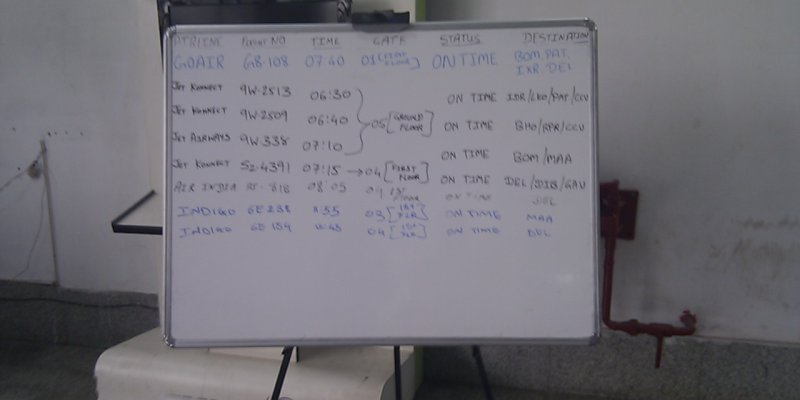 AIRLINE FLIGHT NO TIME GATE STATUS DESTINATION
GOAIR G8-108 07:40 01 [FIRST FLOOR] ON TIME BOM.PAT.
IXR DEL
JET KONNECT 9W-2513 06:30 ON TIME IDR/LKO/PAT/CCU
JET KONNECT 9W-2509 06:40 05 [GROUND FLOOR] ON TIME BHO/RPR/CCU
JET AIRWAYS 9W-338 07:10 ON TIME BOM/MAA
JET KONNECT S2-4391 07:15 → 04 [FIRST FLOOR] ON TIME DEL / /GAU
AIR INDIA 08:05 1st FLOOR ON TIME DEL
INDIGO 6E 238 03 [1st FLR] ON TIME MAA
INDIGO 6E 184 04 [1st FLR] ON TIME DEL